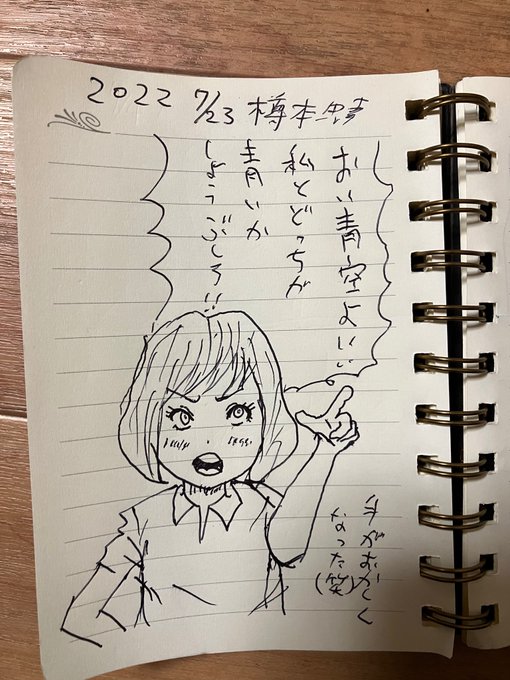 2022 7/23 樽本忠靖
おい青空よ!!!
私とどっちが
青いか
しょうぶしろ!!
手がおかしく
なった(笑)